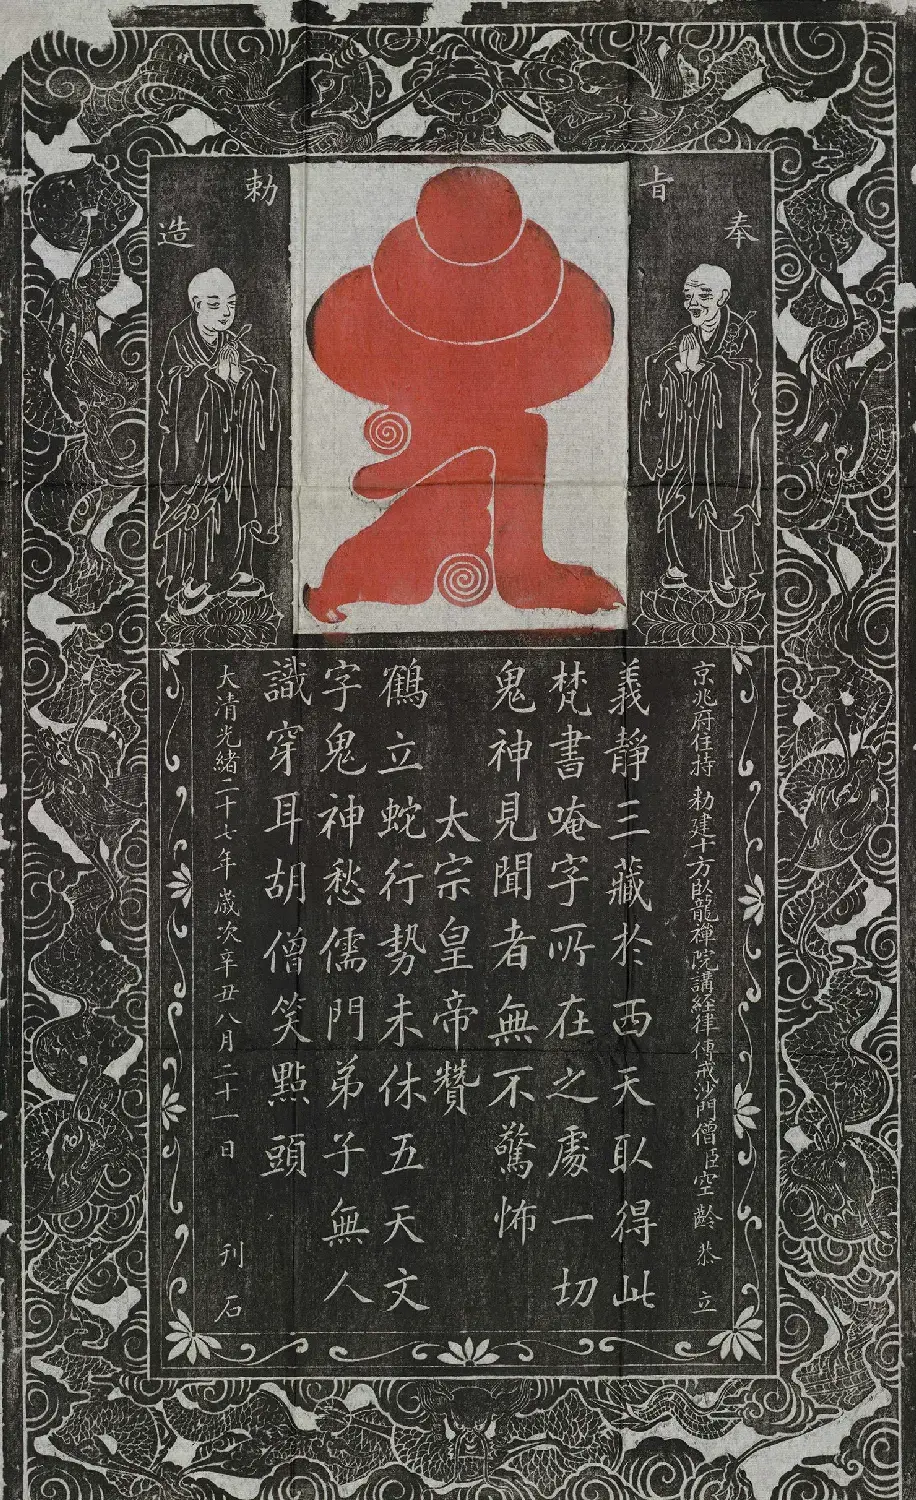 奉
旨
勅
造
京兆府住持勅建十方臥龍禪院講經律傳戒沙門僧臣空齡恭立
義靜三藏於西天取得此
梵書唵字所在之處一切
鬼神見聞者無不驚怖
太宗皇帝贊
鶴立蛇行勢未休五天文
字鬼神愁儒門弟子無人
識穿耳胡僧笑點頭
大清光緒二十七年歲次辛丑八月二十一日刊石